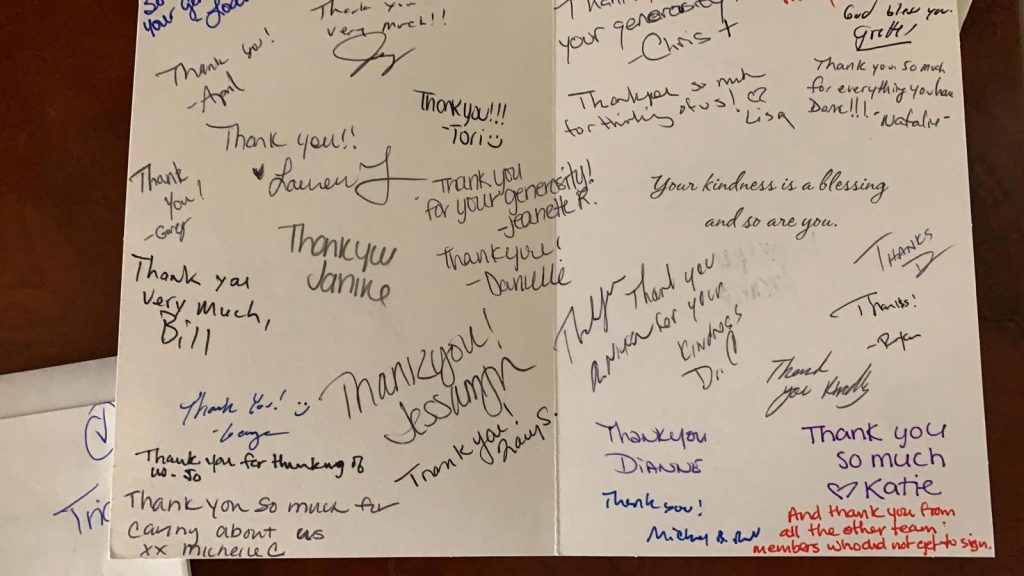 So
your ge
Thank you
very much!!!
Thank you!
-April
Thank you!!!
-Tori
Thank you!!
Lauren
Thank
You!
Thank you
for your generosity!
-Jeanette R.
Thank you
Janine
Thank you!
-Danielle
Thank you
very Much,
Bill
Thank you!
Jessamyn
Thank You!
Thank you for thinking of
us - Jo
Thank you!
Thank you so much for
caring about us
xx michelle C
your generosity!
-Chris
God bless you
Thank you so much
for thinking of us!
Lisa
Thank you so much
for everything you have
Done!!!
-Natalie-
Your kindness is a blessing
and so are you.
THANKS
Thank you
for your
kindness
Thanks!
-Ryan
Thank
you kindly
Thank you
DIANNE
Thank you
so much
Katie
Thank you!
Mickey
And thank you from
all the other team
members who did not get to sign.
Tric